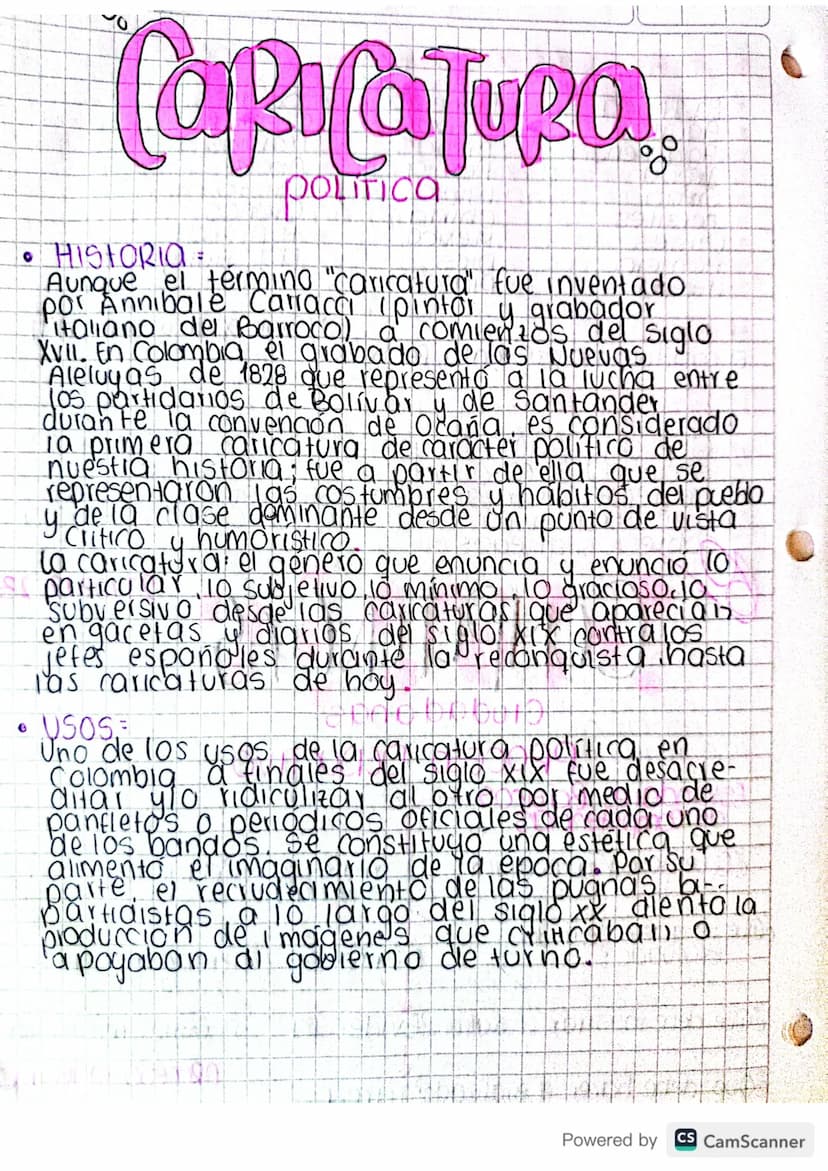 CaRICaTURa
POLITICa
• HISTORIA:
Aunque el término "caricatura" fue inventado
por Annibale Carracci (pintor y grabador
italiano del Barroco) a comienzos del siglo
XVII. En Colombia el grabado de las Nuevas
Aleluyas de 1828 que representó a la lucha entre
los partidarios de Bolívar y de Santander
durante la convención de Ocaña, es considerado
la primera caricatura de carácter político de
nuestra historia; fue a partir de ella que se
representaron las costumbres y hábitos del pueblo
y de la clase dominante desde un punto de vista
critico y humorístico.
La caricatura: el género que enuncia y enunció lo
particular, lo subjetivo, lo mínimo, lo gracioso, lo
subversivo desde las caricaturas que aparecían
en gacetas y diarios del siglo XIX contra los
jefes españoles durante la reconquista hasta
las caricaturas de hoy.
• USOS:
Uno de los usos de la caricatura política en
Colombia a finales del siglo XIX fue desacre-
ditar y/o ridiculizar al otro por medio de
panfletos o periódicos oficiales de cada uno
de los bandos. Se constituyó una estética que
alimentó el imaginario de la época. Por su
parte, el recrudecimiento de las pugnas bi-
partidistas a lo largo del siglo XX alentó la
producción de imágenes que criticaban o
apoyabon al gobierno de turno.
Powered by CS CamScanner